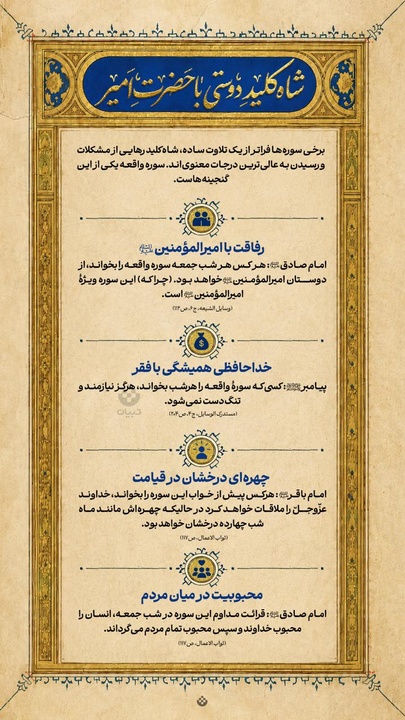 شاه کلید دوستی با حضرت امیر
برخی سوره‌ها فراتر از یک تلاوت ساده، شاه‌کلید رهایی از مشکلات
و رسیدن به عالی‌ترین درجات معنوی‌اند. سوره واقعه یکی از این
گنجینه‌هاست.
رفاقت با امیرالمؤمنین
امام صادق: هر کس هر شب جمعه سوره واقعه را بخواند، از
دوستان امیرالمؤمنین خواهد بود. (چرا که) این سوره ویژهٔ
امیرالمؤمنین است.
(وسایل الشیعه، ج۶، ص۱۱۲)
خداحافظی همیشگی با فقر
پیامبرﷺ: کسی که سورهٔ واقعه را هر شب بخواند، هرگز نیازمند و
تنگ دست نمی‌شود.
(مستدرک الوسایل، ج۴، ص۲۰۴)
تبیان
چهره‌ای درخشان در قیامت
امام باقر: هرکس پیش از خواب این سوره را بخواند، خداوند
عزّوجلّ را ملاقات خواهد کرد در حالیکه چهره‌اش مانند ماه
شب چهارده درخشان خواهد بود.
(ثواب الاعمال، ص۱۱۷)
محبوبیت در میان مردم
امام صادق: قرائت مداوم این سوره در شب جمعه، انسان را
محبوب خداوند و سپس محبوب تمام مردم می‌گرداند.
(ثواب الاعمال، ص۱۱۷)